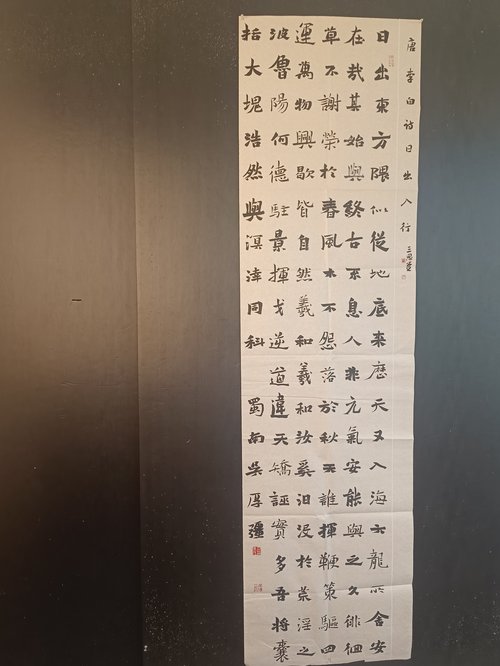 唐李白詩日出入行
日出東方隈似從地底來歷天又入海六龍所舍安
在哉其始與終古不息人非元氣安能與之久徘徊
草不謝榮於春風木不怨落於秋天誰揮鞭策驅四
運萬物興歇皆自然羲和羲和汝奚汨沒於荒淫之
波魯陽何德駐景揮戈逆道違天矯誣實多吾將囊
括大塊浩然與溟涬同科 蜀南吳厚疆